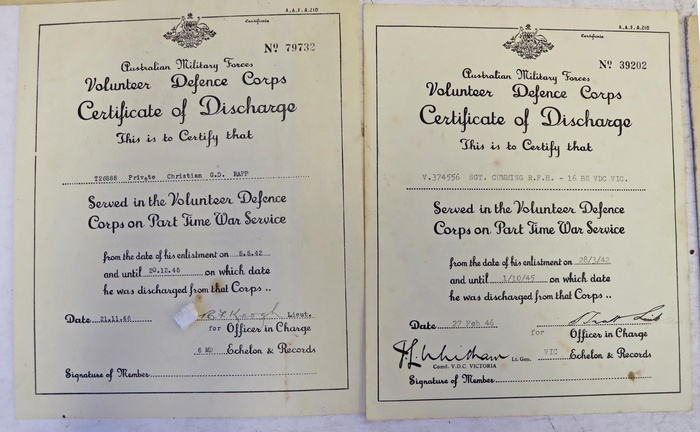 A.A.F. A.210
Certificate
Nº 79732
Australian Military Forces
Volunteer Defence Corps
Certificate of Discharge
This is to Certify that
T26888 Private Christian G.D. RAPP
Served in the Volunteer Defence
Corps on Part Time War Service
from the date of his enlistment on 5.5.42
and until 20.12.45 on which date
he was discharged from that Corps ..
Date 21.11.46 Lieut.
for Officer in Charge
6 MD Echelon & Records
Signature of Member
A.A.F. A.210
Certificate
Nº 39202
Australian Military Forces
Volunteer Defence Corps
Certificate of Discharge
This is to Certify that
V.374556 SGT. CUMMING R.F.H. - 16 BN VDC VIC.
Served in the Volunteer Defence
Corps on Part Time War Service
from the date of his enlistment on 28/3/42
and until 1/10/45 on which date
he was discharged from that Corps ..
Date 27 Feb 46
for Officer in Charge
Lt. Gen. VIC Echelon & Records
Comd. V.D.C. VICTORIA
Signature of Member